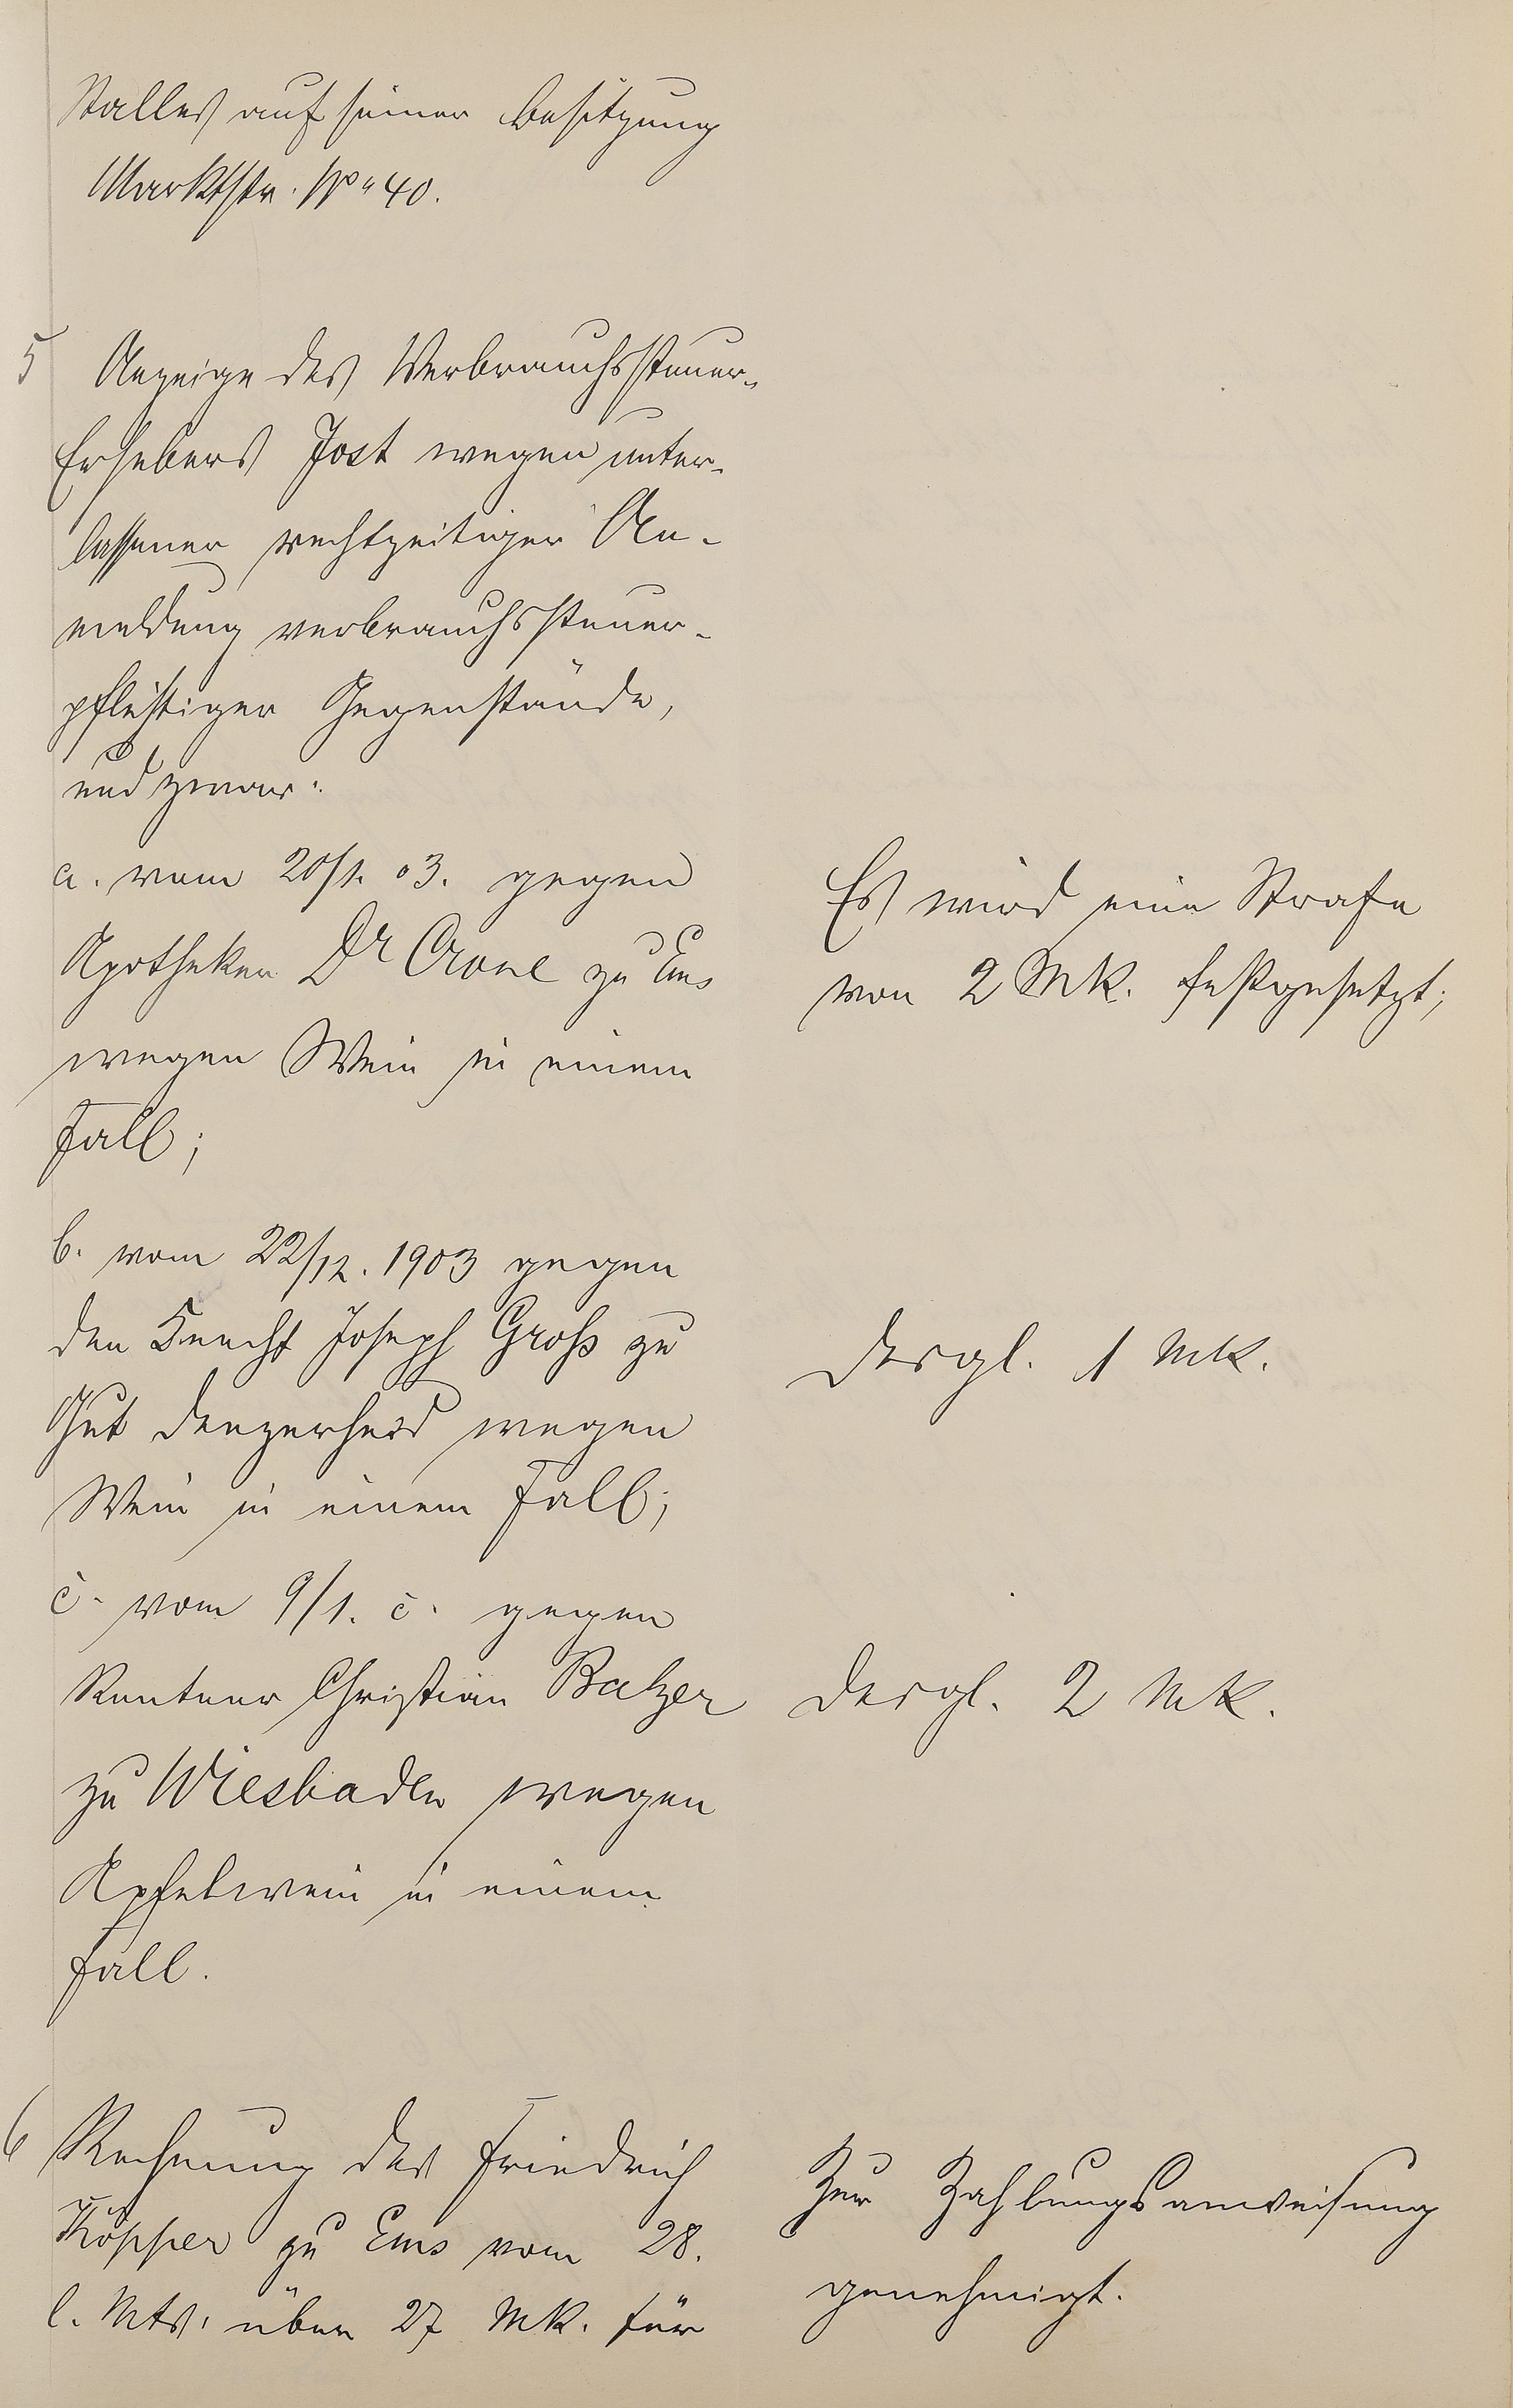 Stalles auf seiner Besitzung
Marktstr. No 40.
5 Anzeige des Verbrauchssteuer-
Erhebers Jost wegen unter-
lassener rechtzeitiger An-
meldung verbrauchssteuer-
pflichtiger Gegenstände,
und zwar:
a. vom 20/1. 03. gegen
Apotheker Dr Crone zu Ems
wegen Wein in einem
Fall;
Es wird eine Strafe
von 2 Mk. festgesetzt;
b. vom 22/12. 1903 gegen
den Knecht Joseph Groß zu
Gut Denzerheid wegen
Wein in einem Fall;
Desgl. 1 Mk.
c. vom 9/1. c. gegen
Rentner Christian Balzer
zu Wiesbaden wegen
Apfelwein in einem
Fall.
Desgl. 2 Mk.
6 Rechnung des Friedrich
Köpper zu Ems vom 28.
l. Mts. über 27 Mk. für
Zur Zahlungsanweisung
genehmigt.